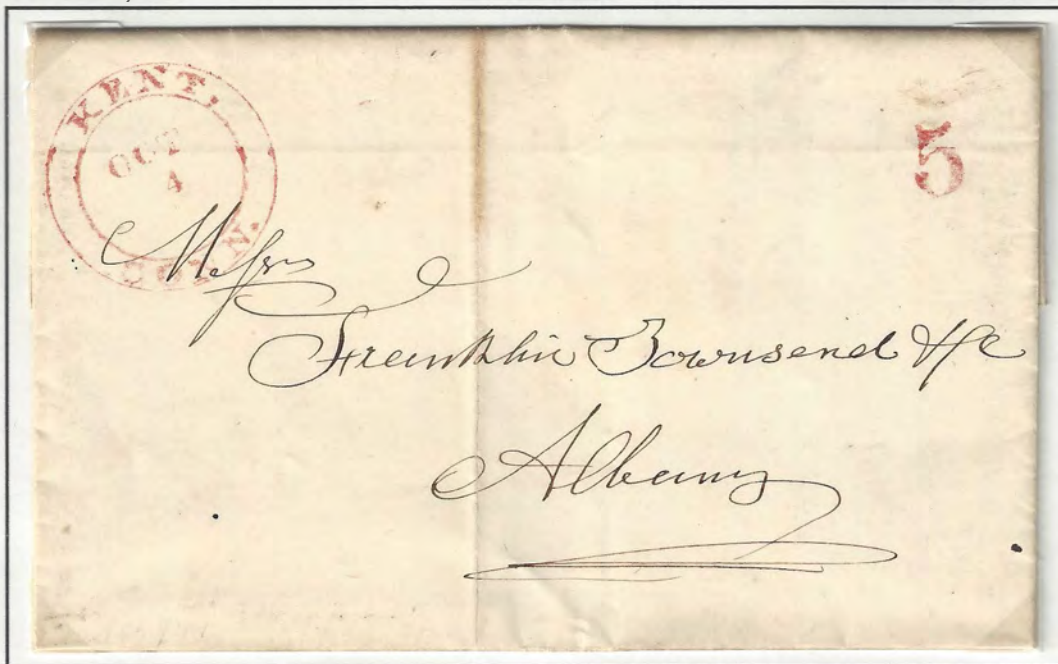 KENT.
OCT
4
CONN.
5
Messrs
Franklin Townsend &c
Albany